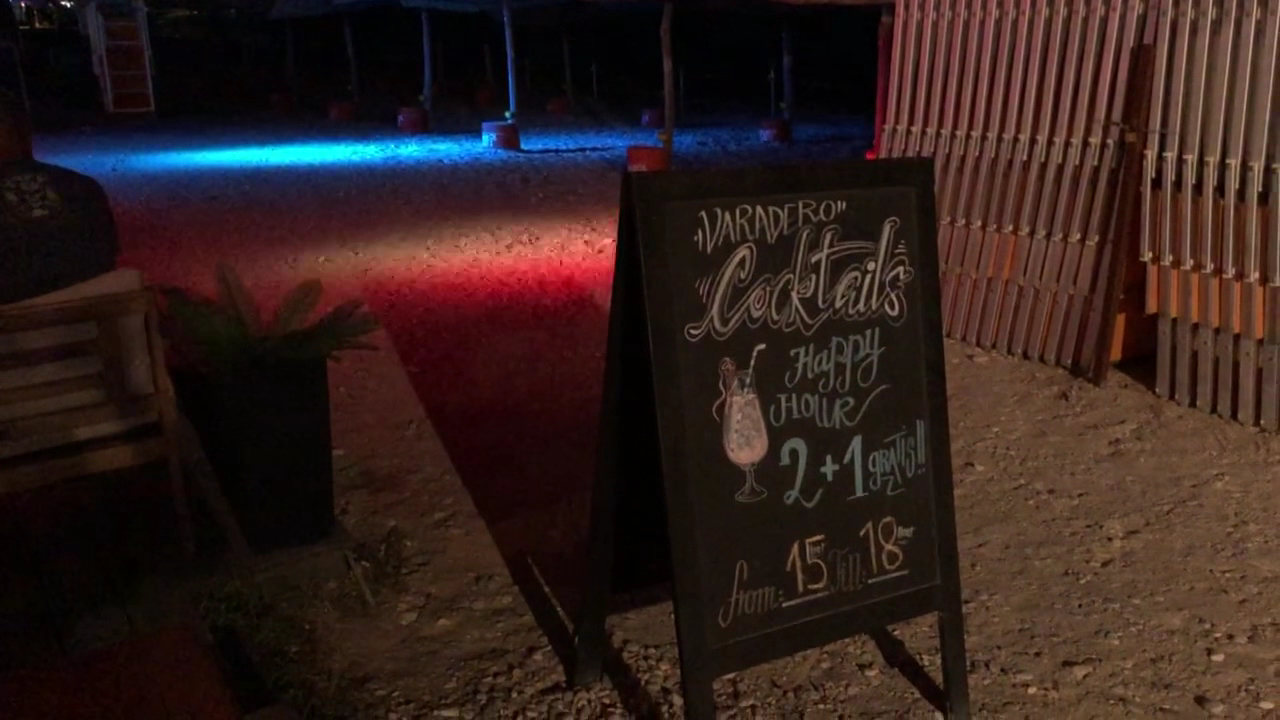 "VARADERO"
Cocktails
Happy
HOUR
2+1 gRATiS!!
from: 15 Till 18